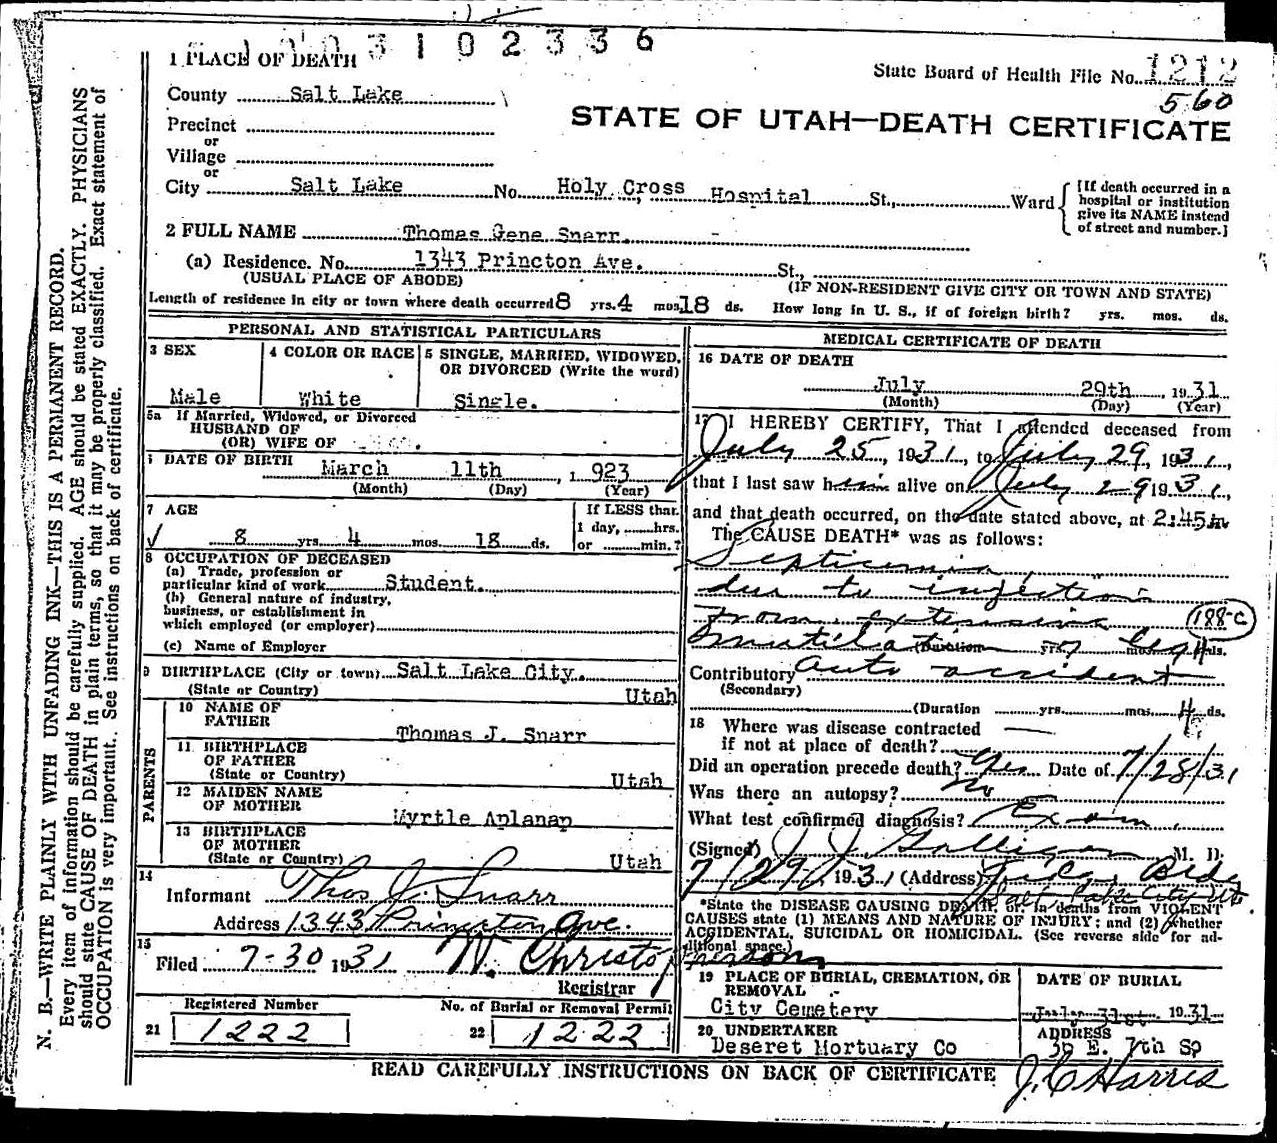 3 1 0 2 3 3 6
1 PLACE OF DEATH
State Board of Health File No. 1212
560
County Salt Lake
STATE OF UTAH—DEATH CERTIFICATE
Precinct
or
Village
or
City Salt Lake No. Holy Cross Hospital St., Ward
[If death occurred in a
hospital or institution
give its NAME instead
of street and number.]
2 FULL NAME Thomas Gene Snarr.
(a) Residence. No. 1343 Princton Ave. St.,
(USUAL PLACE OF ABODE) (IF NON-RESIDENT GIVE CITY OR TOWN AND STATE)
Length of residence in city or town where death occurred 8 yrs. 4 mos. 18 ds. How long in U. S., if of foreign birth? yrs. mos. ds.
PERSONAL AND STATISTICAL PARTICULARS
3 SEX
Male
4 COLOR OR RACE
White
5 SINGLE, MARRIED, WIDOWED,
OR DIVORCED (Write the word)
Single.
5a If Married, Widowed, or Divorced
HUSBAND OF
(OR) WIFE OF
DATE OF BIRTH March 11th, 1923
(Month) (Day) (Year)
7 AGE
8 yrs. 4 mos. 18 ds.
If LESS than
1 day, hrs.
or min.?
8 OCCUPATION OF DECEASED
(a) Trade, profession or
particular kind of work Student.
(b) General nature of industry,
business, or establishment in
which employed (or employer)
(c) Name of Employer
9 BIRTHPLACE (City or town) Salt Lake City.
(State or Country) Utah
PARENTS
10 NAME OF
FATHER Thomas J. Snarr
11 BIRTHPLACE
OF FATHER
(State or Country) Utah
12 MAIDEN NAME
OF MOTHER Myrtle Aplanap
13 BIRTHPLACE
OF MOTHER
(State or Country) Utah
14
Informant Thos J. Snarr
Address 1343 Princeton Ave.
15
Filed 7-30 1931 W. Christopherson
Registrar
Registered Number
21 1222
No. of Burial or Removal Permit
22 1222
MEDICAL CERTIFICATE OF DEATH
16 DATE OF DEATH
July 29th, 1931
(Month) (Day) (Year)
17 I HEREBY CERTIFY, That I attended deceased from
July 25, 1931, to July 29, 1931,
that I last saw him alive on July 29 1931,
and that death occurred, on the date stated above, at 2:45 m
The CAUSE DEATH* was as follows:
Septicemia,
due to infection
from extensive
188-C
mutilation leg
(Duration yrs. mos. 4 ds.
Contributory auto accident
(Secondary)
(Duration yrs. mos. 4 ds.
18 Where was disease contracted
if not at place of death?
Did an operation precede death? Yes Date of 7/28/31
Was there an autopsy? No
What test confirmed diagnosis? Exam.
(Signed) J. J. Galligan M. D.
7/29/1931 (Address) Bldg
Salt Lake City Ut.
*State the DISEASE CAUSING DEATH, or in deaths from VIOLENT
CAUSES state (1) MEANS AND NATURE OF INJURY; and (2) whether
ACCIDENTAL, SUICIDAL OR HOMICIDAL. (See reverse side for ad-
ditional space.)
19 PLACE OF BURIAL, CREMATION, OR
REMOVAL
City Cemetery
DATE OF BURIAL
July 31st. 1931
20 UNDERTAKER
Deseret Mortuary Co
ADDRESS
36 E. 7th So
READ CAREFULLY INSTRUCTIONS ON BACK OF CERTIFICATE
J. E. Harris
N. B.—WRITE PLAINLY WITH UNFADING INK—THIS IS A PERMANENT RECORD.
Every item of information should be carefully supplied. AGE should be stated EXACTLY. PHYSICIANS
should state CAUSE OF DEATH in plain terms, so that it may be properly classified. Exact statement of
OCCUPATION is very important. See instructions on back of certificate.